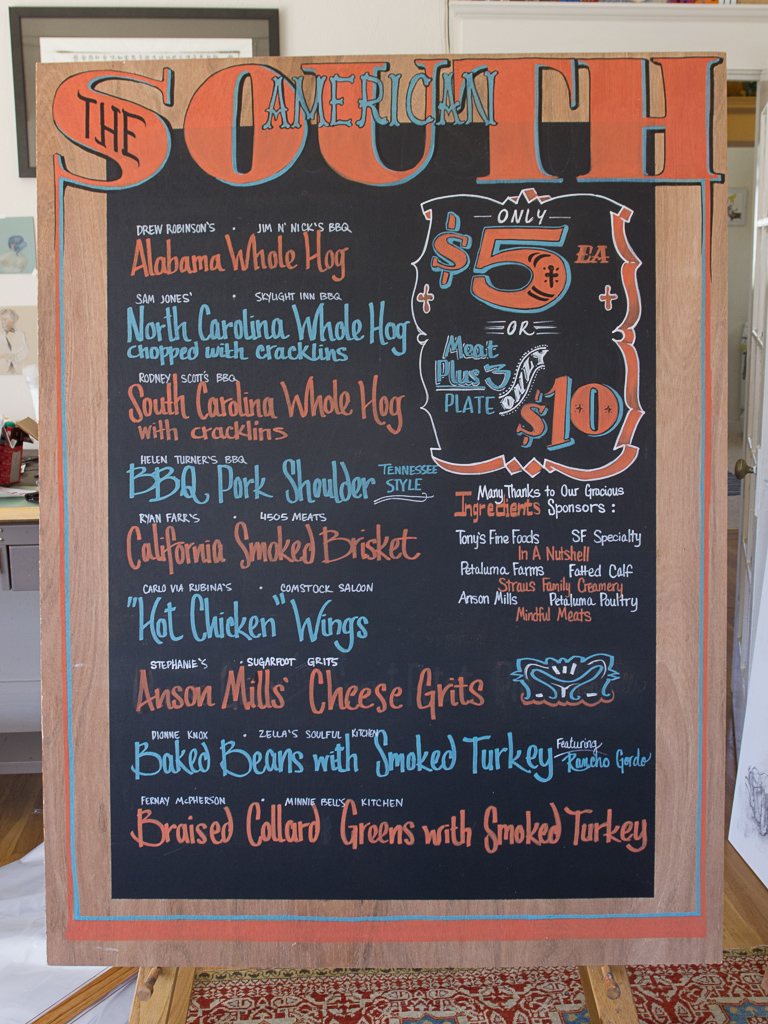 THE AMERICAN SOUTH
DREW ROBINSON'S · JIM N' NICK'S BBQ
Alabama Whole Hog
SAM JONES' · SKYLIGHT INN BBQ
North Carolina Whole Hog
chopped with cracklins
RODNEY SCOTT'S BBQ
South Carolina Whole Hog
with cracklins
HELEN TURNER'S BBQ
BBQ Pork Shoulder TENNESSEE
STYLE
RYAN FARR'S · 4505 MEATS
California Smoked Brisket
CARLO VIA RUBINA'S · COMSTOCK SALOON
"Hot Chicken" Wings
STEPHANIE'S · SUGARFOOT GRITS
Anson Mills' Cheese Grits
DIONNE KNOX · ZELLA'S SOULFUL KITCHEN
Baked Beans with Smoked Turkey Featuring
Rancho Gordo
FERNAY MCPHERSON · MINNIE BELL'S KITCHEN
Braised Collard Greens with Smoked Turkey
ONLY
$5 EA
OR
Meat
Plus 3
PLATE
ONLY
$10
Many Thanks to Our Gracious
Ingredients Sponsors :
Tony's Fine Foods SF Specialty
In A Nutshell
Petaluma Farms Fatted Calf
Straus Family Creamery
Anson Mills Petaluma Poultry
Mindful Meats